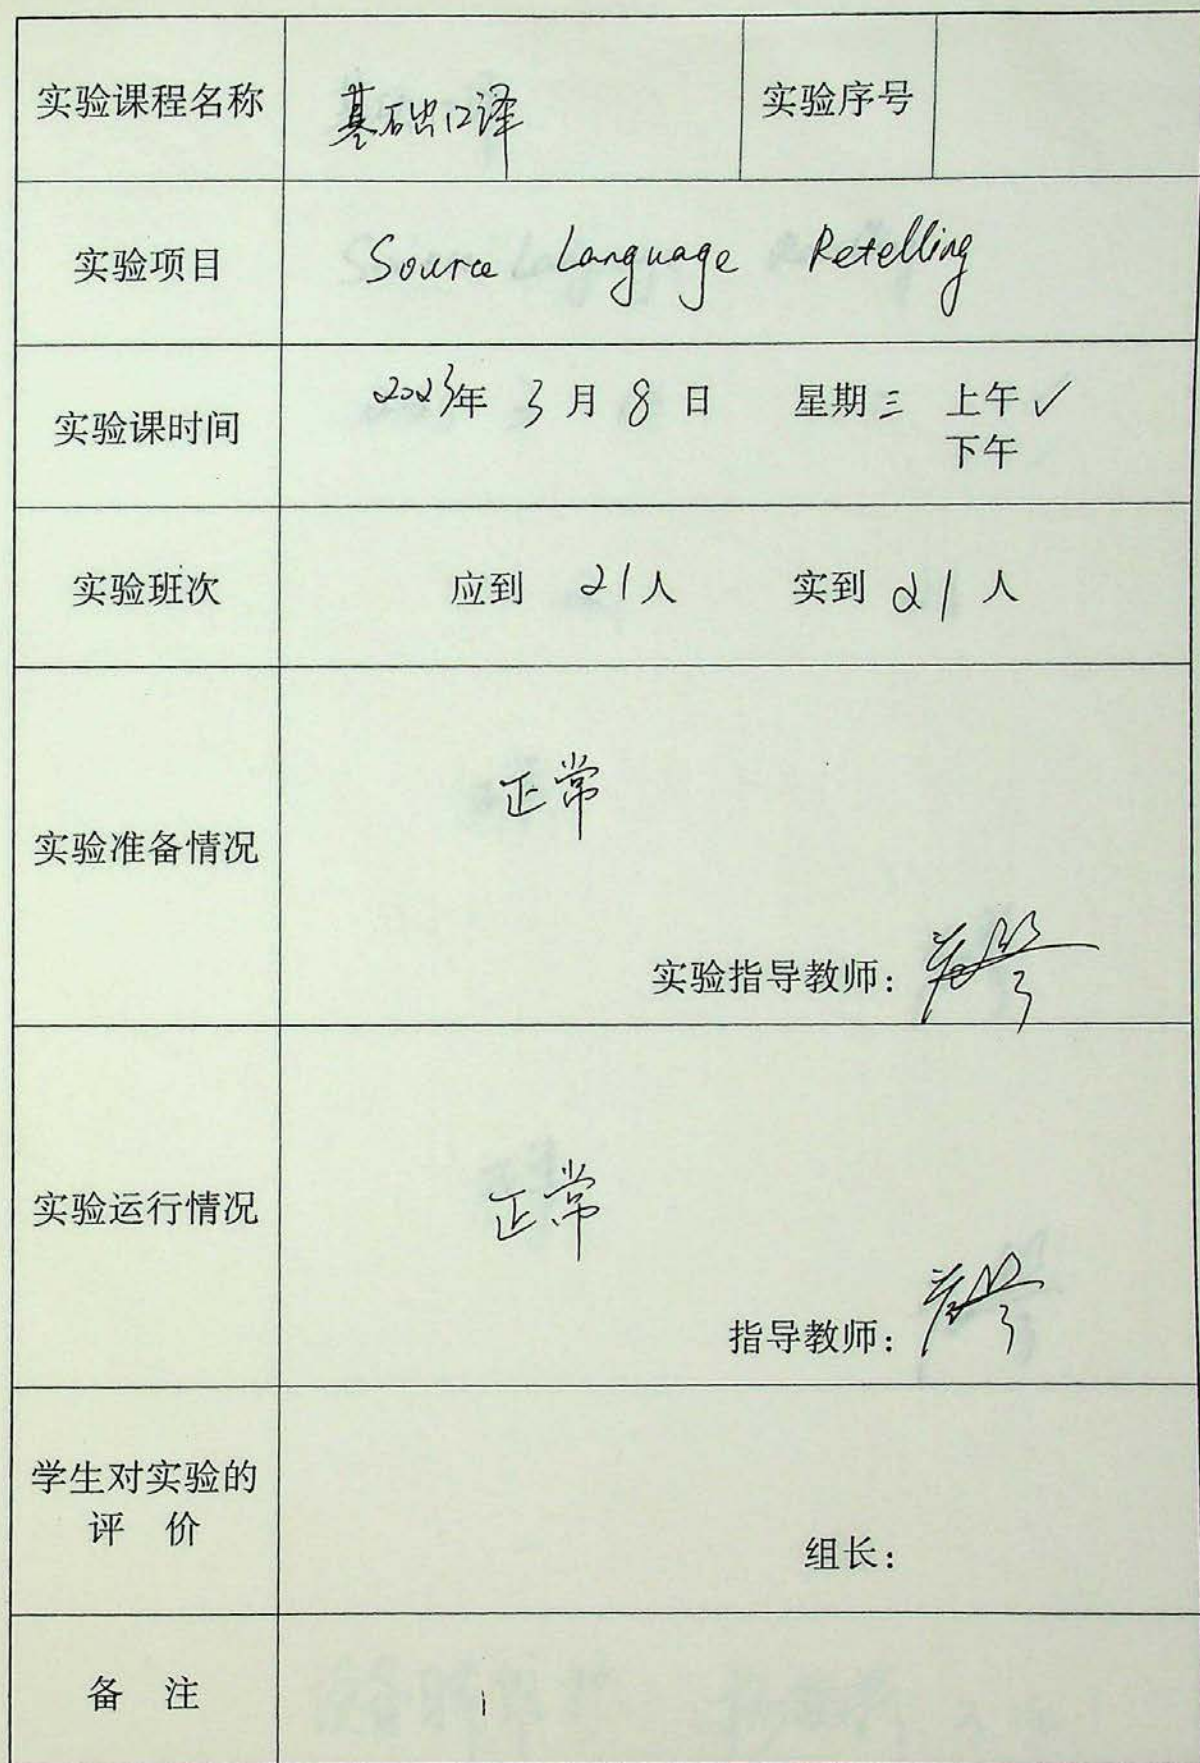 实验课程名称 基础口译 实验序号
实验项目 Source Language Retelling
实验课时间 2023年 3 月 8 日 星期三 上午✓
下午
实验班次 应到 21人 实到 21 人
正常
实验准备情况
实验指导教师：
正常
实验运行情况
指导教师：
学生对实验的
评 价
组长：
备 注